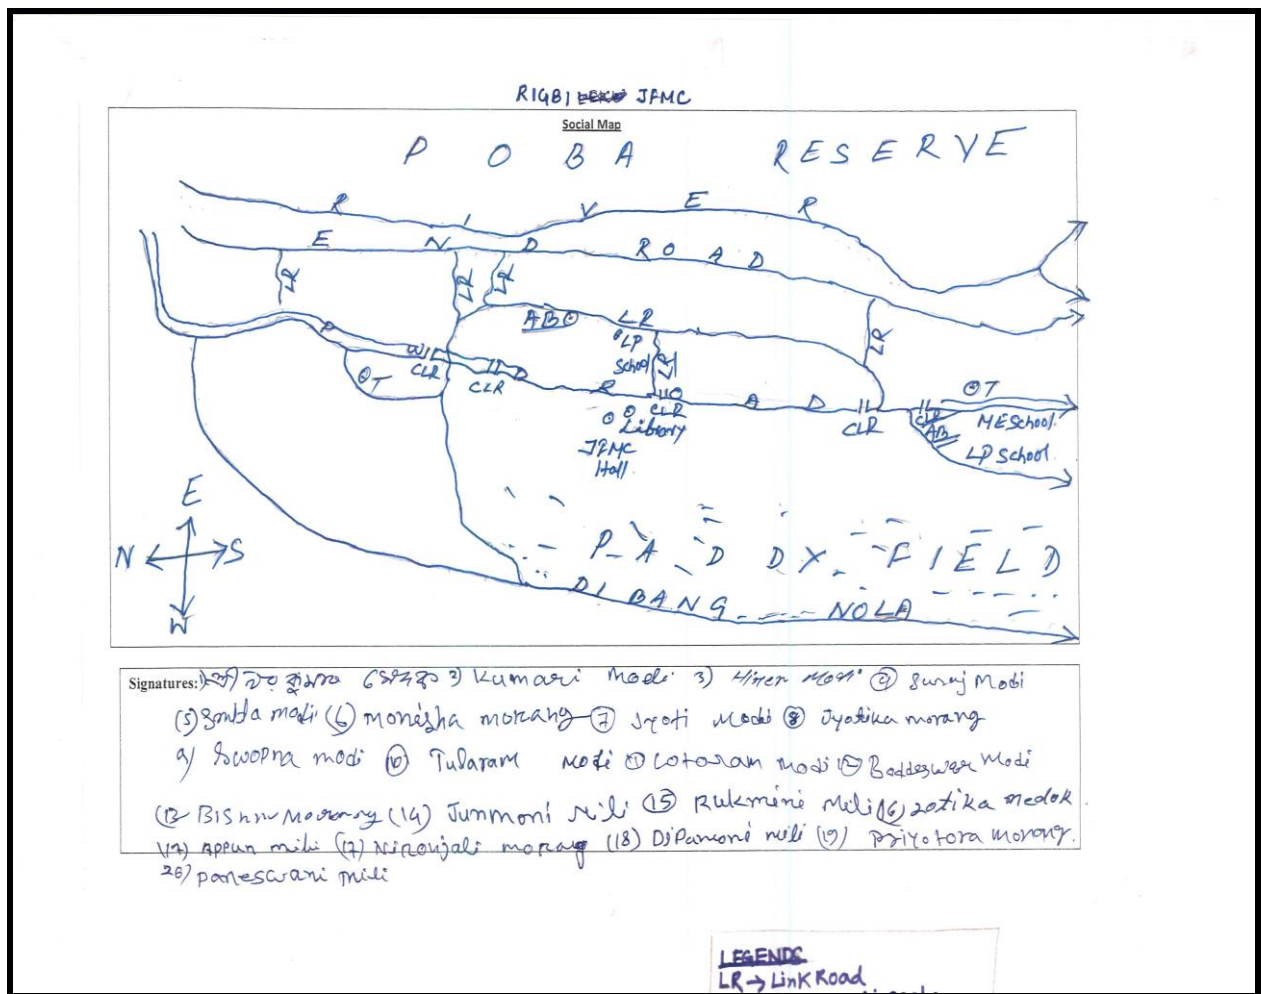 RIGBI JFMC
Social Map
P O B A RESERVE
R I V E R
E N D ROAD
LR
LR
LR
ABO
LR
LP School
LR
LR
P W D R O A D
CLR
CLR
CLR
CLR
CLR
OT
OT
Library
JFMC Hall
AB
ME School
LP School
E
N S
W
PADDY FIELD
DIBANG NOLA
Signatures: 2) Kumari Modi 3) Hiren Modi 4) Suraj Modi
(5) modi (6) Monisha morang 7 Jyoti Modi 8 Jyotika morang
9) Swopna modi 10 Tularam Modi Modi Baddeswar Modi
(13 Bishnu Morang (14) Junmoni Mili 15 Rukmini Mili (16) Medok
(17) Appun mili (17) Niroujali morag (18) DiPamoni mili (19) Priyotora morang.
20) Paneswari mili
LEGENDS
LR → Link Road